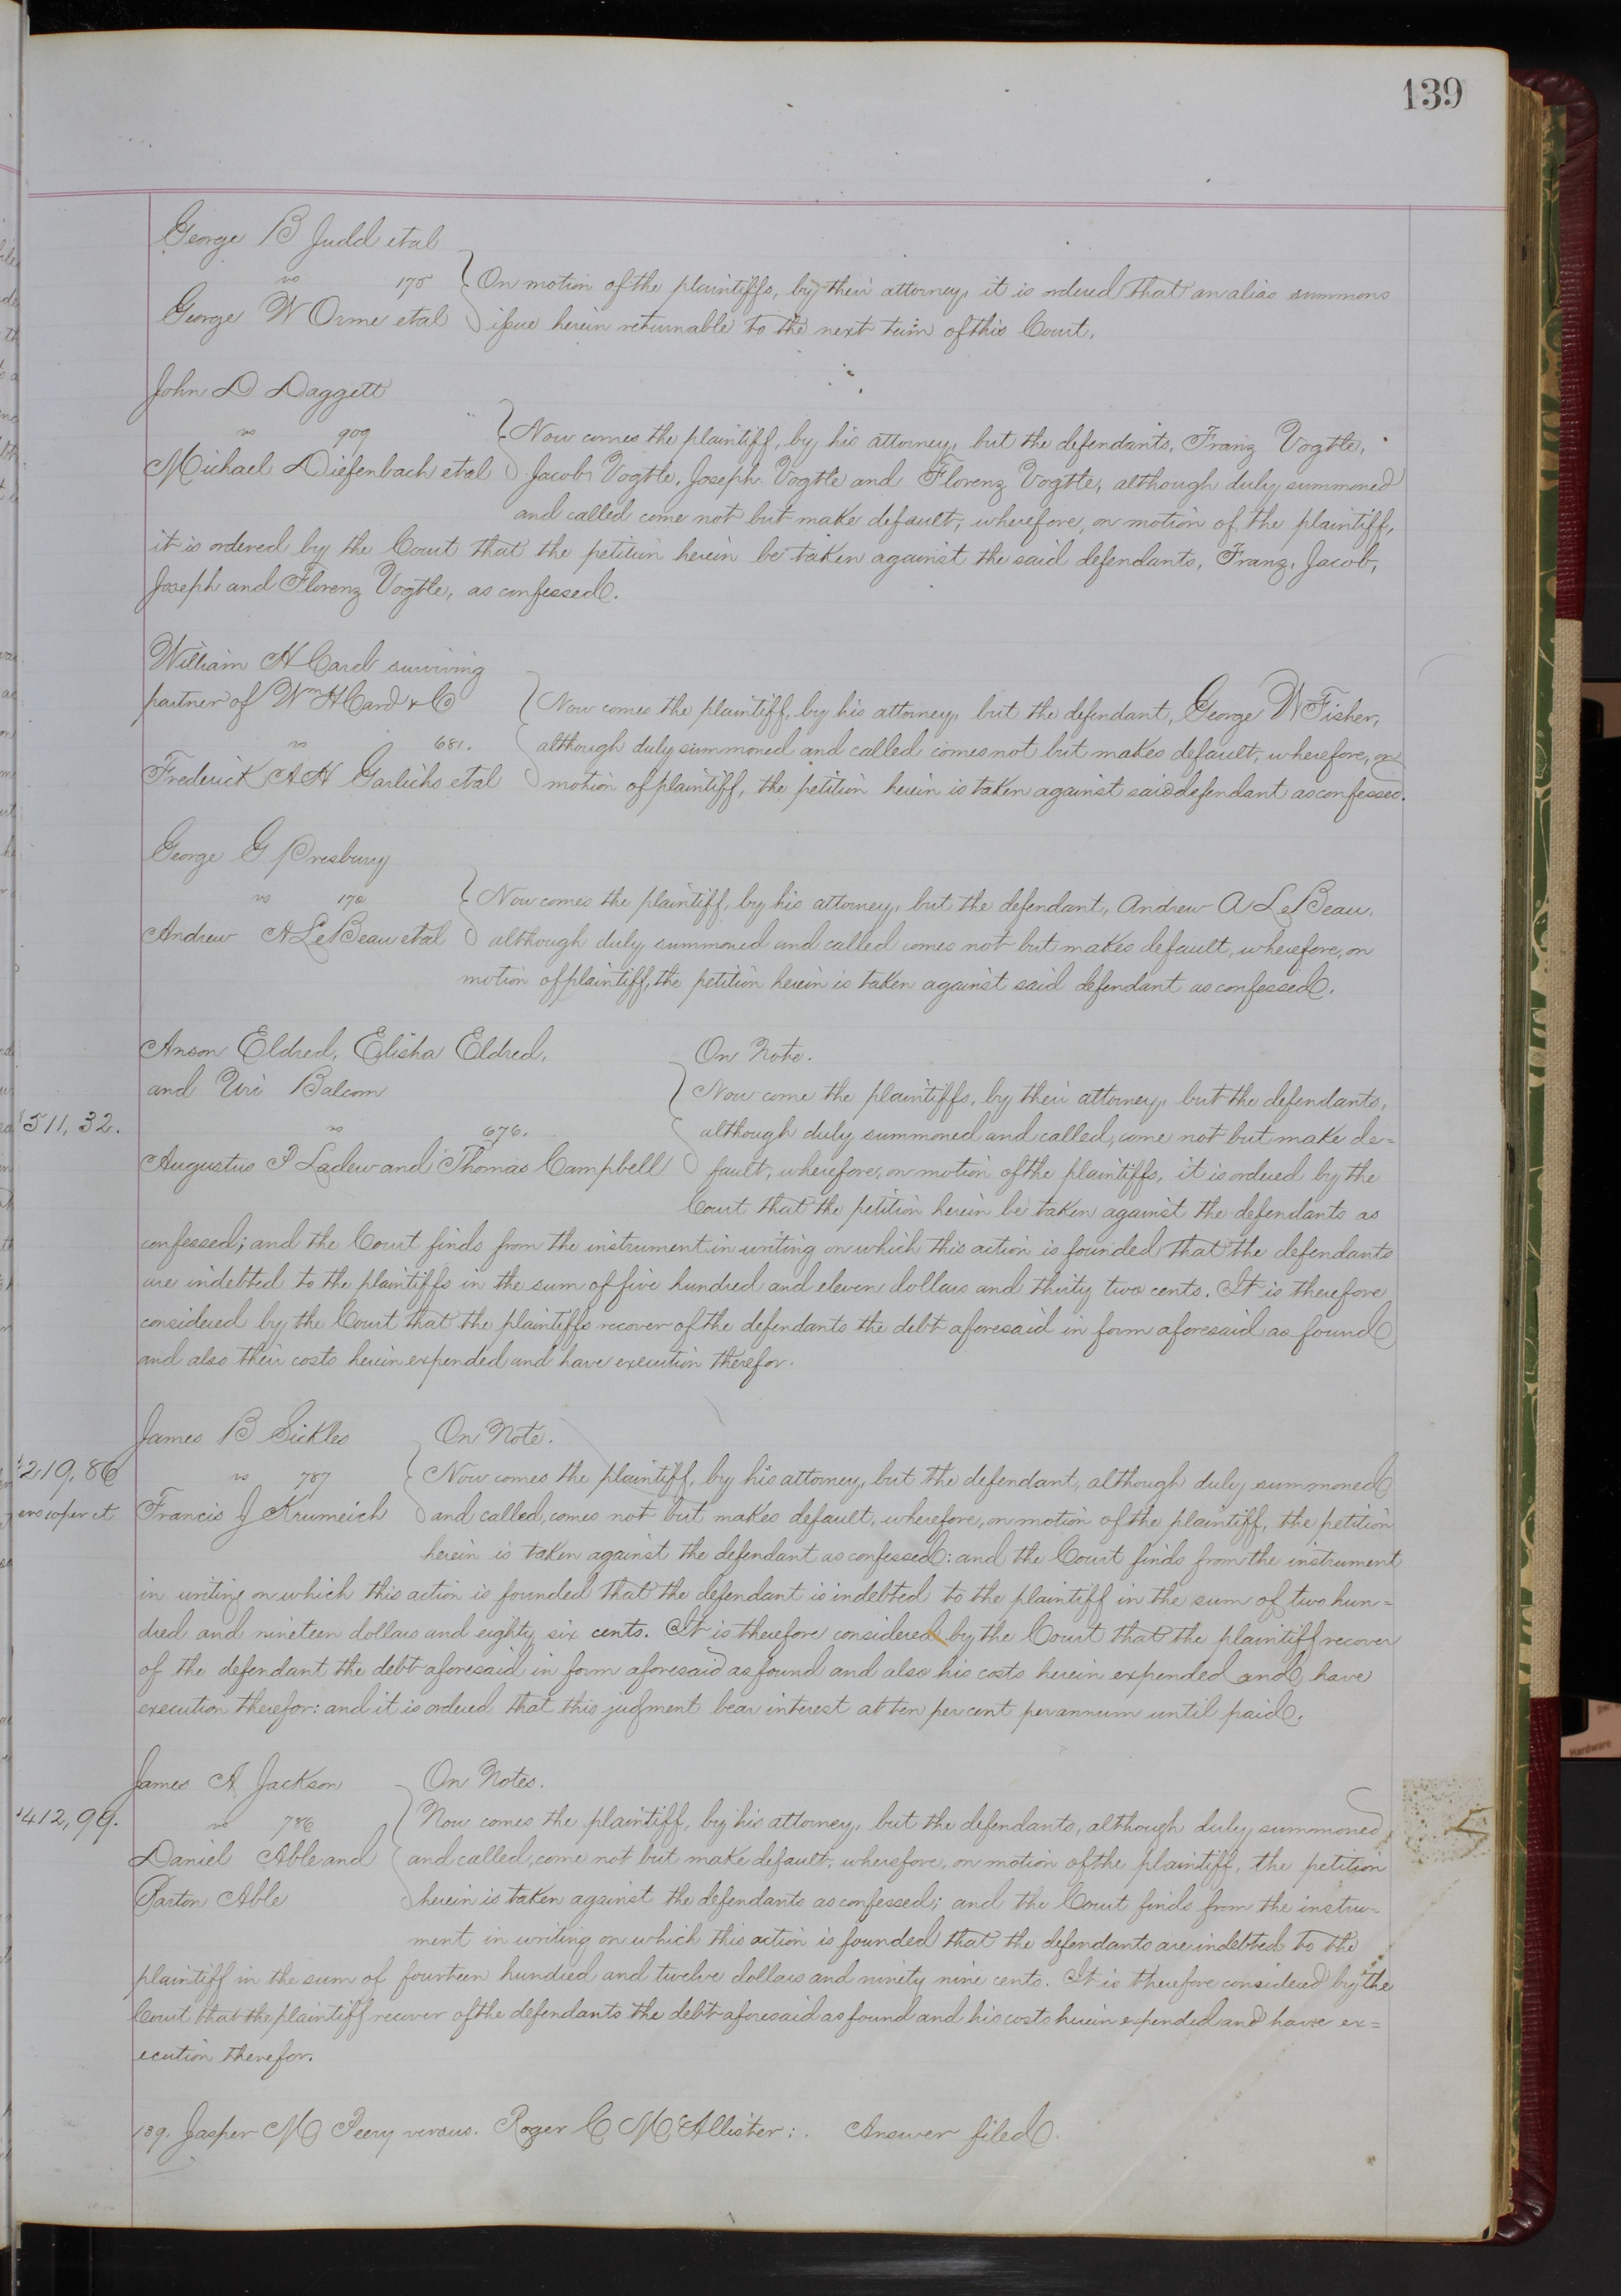 139
George B Judd et al
vs 175
George W Orme et al
On motion of the plaintiffs, by their attorney, it is ordered that an alias summons
issue herein returnable to the next term of this Court.
John D Daggett
vs 909
Michael Diefenbach et al
Now comes the plaintiff, by his attorney, but the defendants, Franz Vogtle,
Jacob Vogtle, Joseph Vogtle and Florenz Vogtle, although duly summoned
and called come not but make default; wherefore, on motion of the plaintiff,
it is ordered by the Court that the petition herein be taken against the said defendants, Franz, Jacob,
Joseph and Florenz Vogtle, as confessed.
William H Card surviving
partner of Wm H Card & Co
vs 681.
Frederick A H Garlichs et al
Now comes the plaintiff, by his attorney, but the defendant, George W Fisher,
although duly summoned and called comes not but makes default; wherefore, on
motion of plaintiff, the petition herein is taken against said defendant as confessed.
George G Presbury
vs 170
Andrew A LeBeau et al
Now comes the plaintiff, by his attorney, but the defendant, Andrew A LeBeau,
although duly summoned and called comes not but makes default, wherefore, on
motion of plaintiff, the petition herein is taken against said defendant as confessed.
Anson Eldred, Elisha Eldred,
and Uri Balcom
511,32.
vs 676.
Augustus P Ladew and Thomas Campbell
On Note.
Now come the plaintiffs, by their attorney, but the defendants,
although duly summoned and called, come not but make de=
fault; wherefore, on motion of the plaintiffs, it is ordered by the
Court that the petition herein be taken against the defendants as
confessed; and the Court finds from the instrument in writing on which this action is founded that the defendants
are indebted to the plaintiffs in the sum of five hundred and eleven dollars and thirty two cents. It is therefore
considered by the Court that the plaintiffs recover of the defendants the debt aforesaid in form aforesaid as found
and also their costs herein expended and have execution therefor.
James B Sickles
219,86
vs 787
Francis J Krumeich
On Note.
Now comes the plaintiff, by his attorney, but the defendant, although duly summoned
and called, comes not but makes default, wherefore, on motion of the plaintiff, the petition
herein is taken against the defendant as confessed: and the Court finds from the instrument
in writing on which this action is founded that the defendant is indebted to the plaintiff in the sum of two hun=
dred and nineteen dollars and eighty six cents. It is therefore considered by the Court that the plaintiff recover
of the defendant the debt aforesaid in form aforesaid as found and also his costs herein expended and have
execution therefor: and it is ordered that this judgment bear interest at ten per cent per annum until paid.
James A Jackson
1412,99.
vs 786
Daniel Able and
Barton Able
On Notes.
Now comes the plaintiff, by his attorney, but the defendants, although duly summoned
and called, come not but make default; wherefore, on motion of the plaintiff, the petition
herein is taken against the defendants as confessed; and the Court finds from the instru=
ment in writing on which this action is founded that the defendants are indebted to the
plaintiff in the sum of fourteen hundred and twelve dollars and ninety nine cents. It is therefore considered by the
Court that the plaintiff recover of the defendants the debt aforesaid as found and his costs herein expended and have ex=
ecution therefor.
139. Jasper M Peery versus. Roger C McAllister:. Answer filed.